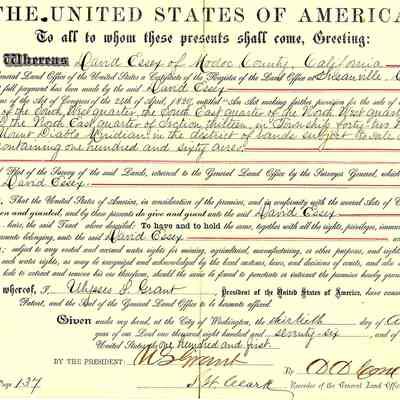 THE UNITED STATES OF AMERICA
To all to whom these presents shall come, Greeting:
Whereas David Essex of Modoc County, California
General Land Office of the United States a Certificate of the Register of the Land Office at Susanville
full payment has been made by the said David Essex
ons of the Act of Congress of the 24th of April, 1820, entitled "An Act making further provision for the sale of
West quarter, the South East quarter of the North West quarter
of the North East quarter of Section thirteen in Township forty-two
Mount Diablo Meridian in the district of lands subject to sale
containing one hundred and sixty acres
Plat of the Survey of the said Lands, returned to the General Land Office by the Surveyor General, which
David Essex
That the United States of America, in consideration of the premises, and in conformity with the several Acts of
en and granted, and by these presents do give and grant unto the said David Essex
heirs, the said Tract above described: To have and to hold the same, together with all the rights, privileges, immun
nements belonging, unto the said David Essex
subject to any vested and accrued water rights for mining, agricultural, manufacturing, or other purposes, and right
such water rights, as may be recognized and acknowledged by the local customs, laws, and decisions of courts, and also
lode to extract and remove his ore therefrom, should the same be found to penetrate or intersect the premises hereby gran
whereof, I, Ulysses S. Grant, President of the United States of America, have caus
Patent, and the Seal of the General Land Office to be hereunto affixed.
Given under my hand, at the City of Washington, the thirtieth day of
year of our Lord one thousand eight hundred and seventy-six, and of
United States the one hundred and first
BY THE PRESIDENT: U.S. Grant
By D. D. Cone
Page 137
Recorder of the General Land Off